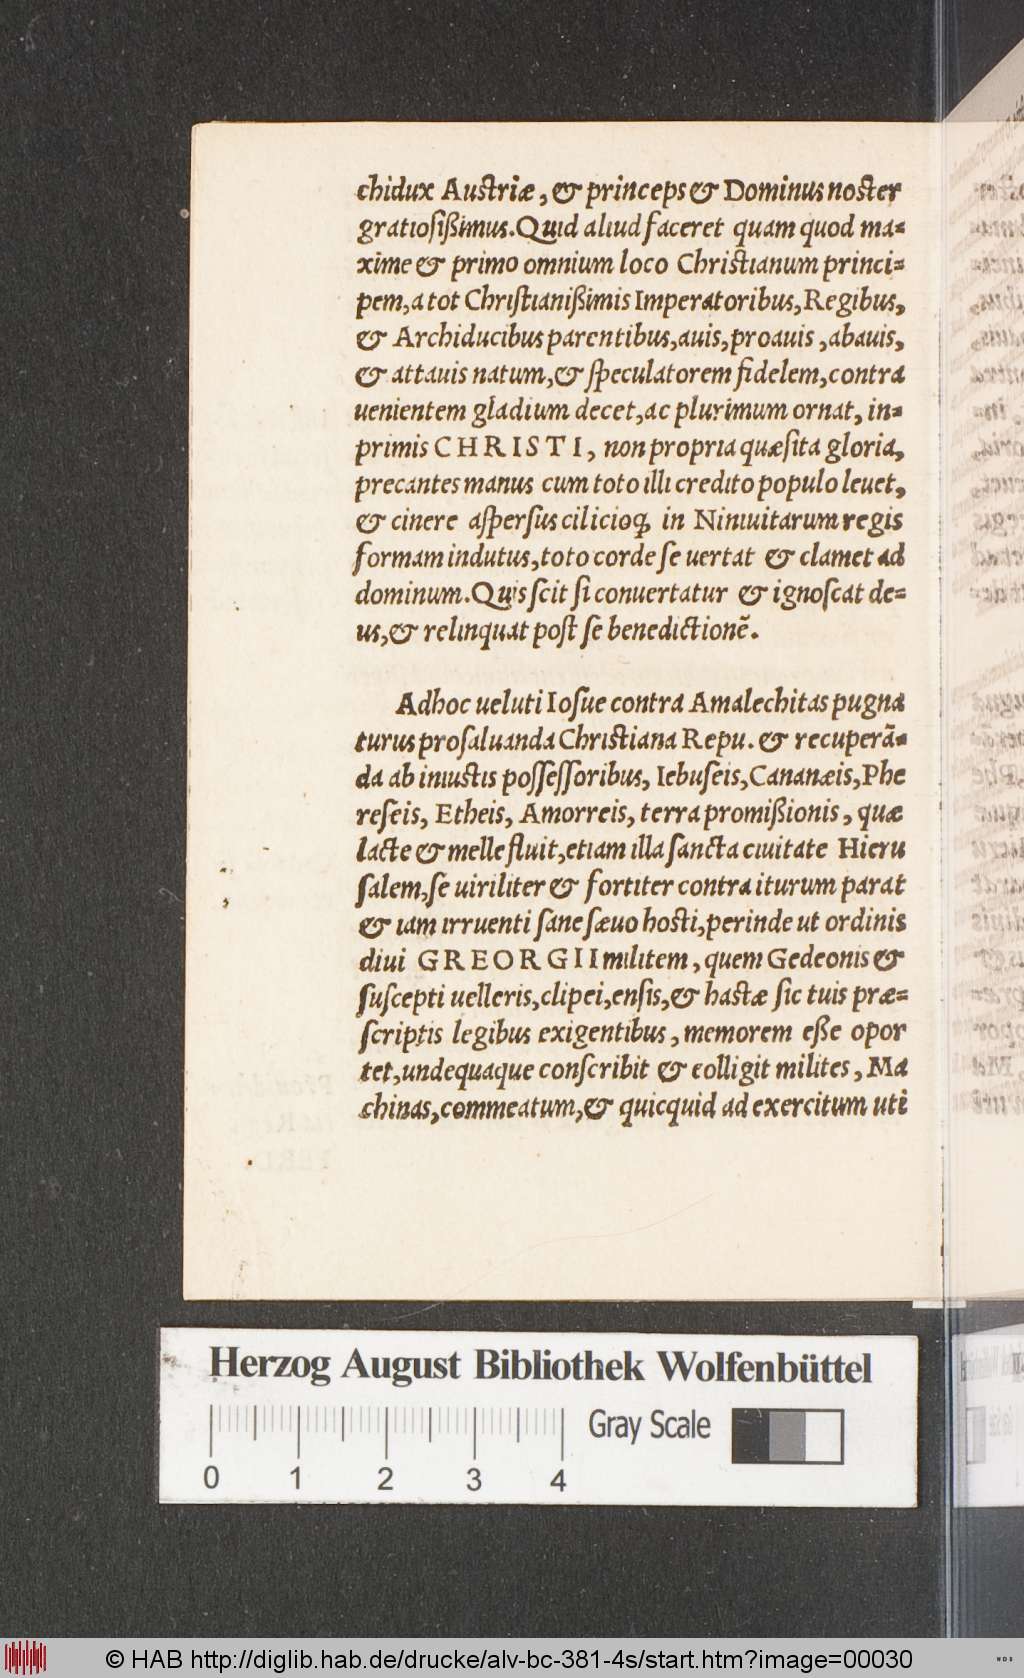 chidux Austriæ, & princeps & Dominus noster
gratiosißimus. Quid aliud faceret quam quod ma-
xime & primo omnium loco Christianum princi-
pem, a tot Christianißimis Imperatoribus, Regibus,
& Archiducibus parentibus, auis, proauis, abauis,
& attauis natum, & speculatorem fidelem, contra
uenientem gladium decet, ac plurimum ornat, in-
primis CHRISTI, non propria quæsita gloria,
precantes manus cum toto illi credito populo leuet,
& cinere aspersus cilicioq́; in Niniuitarum regis
formam indutus, toto corde se uertat & clamet ad
dominum. Quis scit si conuertatur & ignoscat de-
us, & relinquat post se benedictionē.
Adhoc ueluti Iosue contra Amalechitas pugna
turus pro saluanda Christiana Repu. & recuperā-
da ab iniustis possessoribus, Iebuseis, Cananæis, Phe
reseis, Etheis, Amorreis, terra promißionis, quæ
lacte & melle fluit, etiam illa sancta ciuitate Hieru
salem, se uiriliter & fortiter contra iturum parat
& iam irruenti sane sæuo hosti, perinde ut ordinis
diui GREORGII militem, quem Gedeonis &
suscepti uelleris, clipei, ensis, & hastæ sic tuis præ-
scriptis legibus exigentibus, memorem eße opor
tet, undequaque conscribit & colligit milites, Ma
chinas, commeatum, & quicquid ad exercitum uti
Herzog August Bibliothek Wolfenbüttel
Gray Scale
0 1 2 3 4
© HAB http://diglib.hab.de/drucke/alv-bc-381-4s/start.htm?image=00030